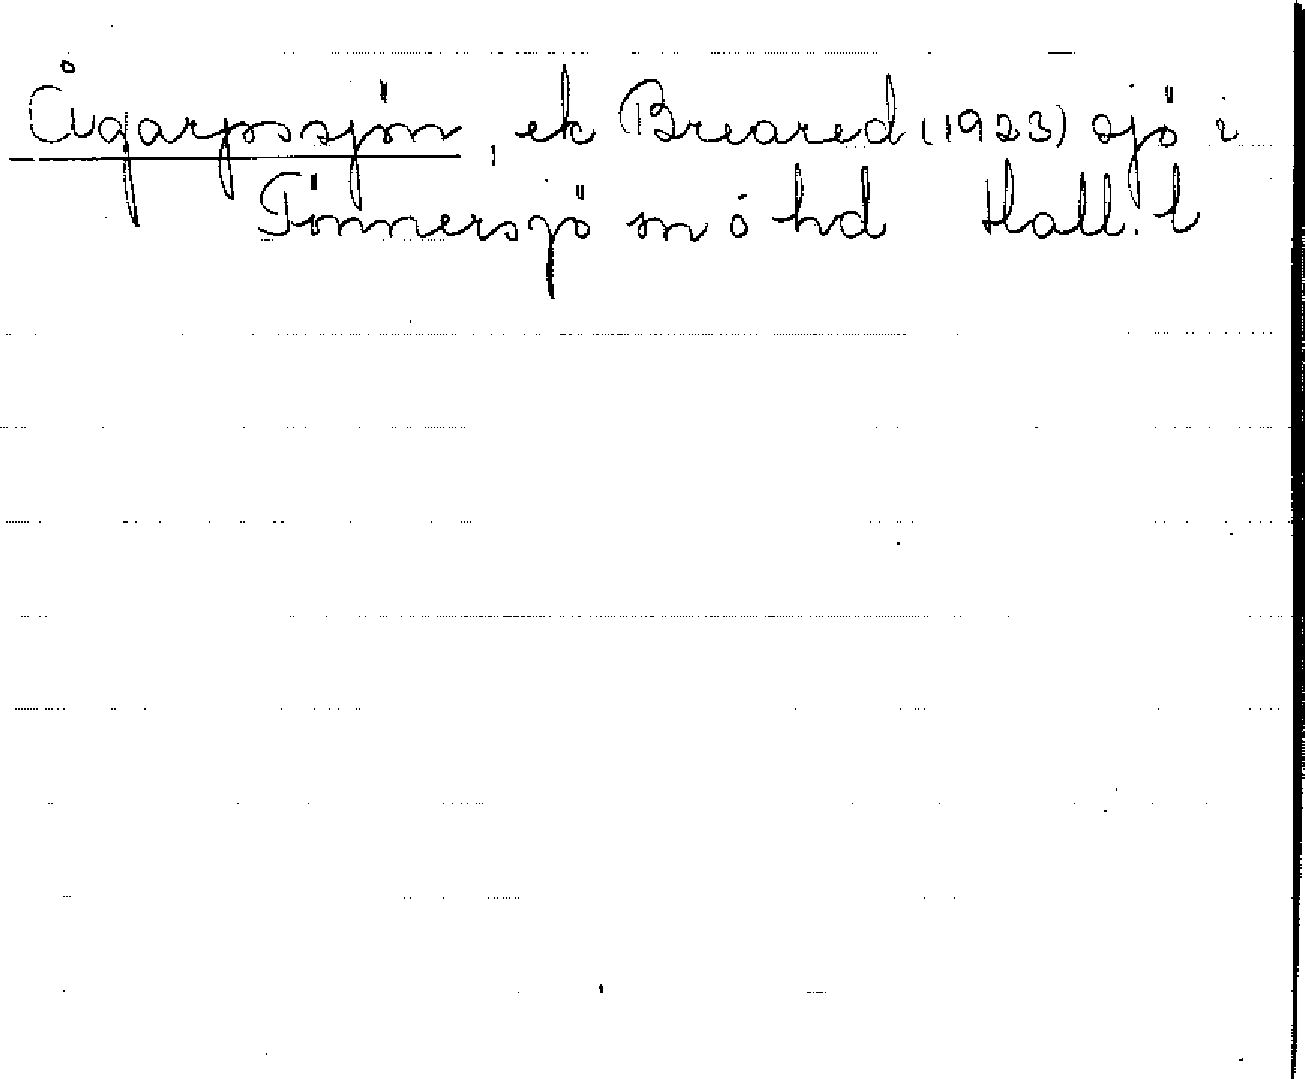 Ågarpssjön, ek Breared (1923) sjö i
Tönnersjö sn ö hd Hall. l